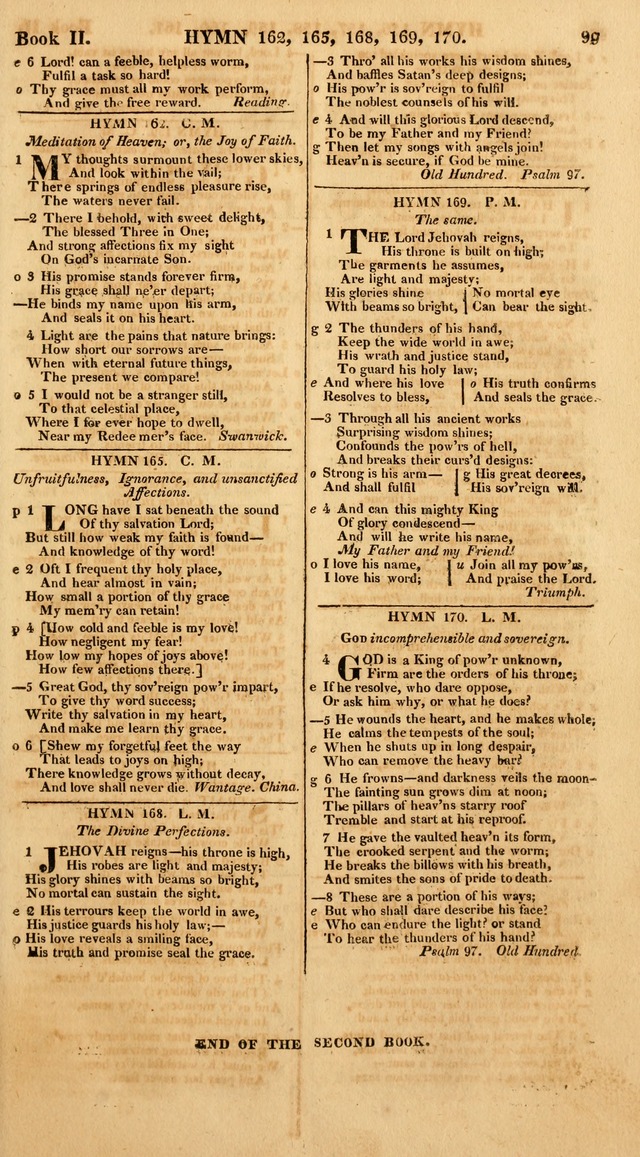 Book II. HYMN 162, 165, 168, 169, 170. 99
e 6 Lord! can a feeble, helpless worm,
Fulfil a task so hard!
o Thy grace must all my work perform,
And give the free reward. Reading.
HYMN 162. C. M.
Meditation of Heaven; or, the Joy of Faith.
1 MY thoughts surmount these lower skies,
And look within the vail;
There springs of endless pleasure rise,
The waters never fail.
—2 There I behold, with sweet delight,
The blessed Three in One;
And strong affections fix my sight
On God's incarnate Son.
o 3 His promise stands forever firm,
His grace shall ne'er depart;
—He binds my name upon his arm,
And seals it on his heart.
4 Light are the pains that nature brings:
How short our sorrows are—
When with eternal future things,
The present we compare!
o 5 I would not be a stranger still,
To that celestial place,
Where I for ever hope to dwell,
Near my Redeemer's face. Swanwick.
HYMN 165. C. M.
Unfruitfulness, Ignorance, and unsanctified
Affections.
p 1 LONG have I sat beneath the sound
Of thy salvation Lord;
But still how weak my faith is found—
And knowledge of thy word!
e 2 Oft I frequent thy holy place,
And hear almost in vain;
How small a portion of thy grace
My mem'ry can retain!
p 4 [How cold and feeble is my love!
How negligent my fear!
How low my hopes of joys above!
How few affections there.]
—5 Great God, thy sov'reign pow'r impart,
To give thy word success;
Write thy salvation in my heart,
And make me learn thy grace.
o 6 [Shew my forgetful feet the way
That leads to joys on high;
There knowledge grows without decay,
And love shall never die. Wantage. China.
HYMN 168. L. M.
The Divine Perfections.
1 JEHOVAH reigns—his throne is high,
His robes are light and majesty;
His glory shines with beams so bright,
No mortal can sustain the sight.
e 2 His terrours keep the world in awe,
His justice guards his holy law;—
o His love reveals a smiling face,
His truth and promise seal the grace.
—3 Thro' all his works his wisdom shines,
And baffles Satan's deep designs;
o His pow'r is sov'reign to fulfil
The noblest counsels of his will.
e 4 And will this glorious Lord descend,
To be my Father and my Friend?
g Then let my songs with angels join!
Heav'n is secure, if God be mine.
Old Hundred. Psalm 97.
HYMN 169. P. M.
The same.
1 THE Lord Jehovah reigns,
His throne is built on high;
The garments he assumes,
Are light and majesty;
His glories shine | No mortal eye
With beams so bright, | Can bear the sight.
g 2 The thunders of his hand,
Keep the wide world in awe;
His wrath and justice stand,
To guard his holy law;
e And where his love | o His truth confirms
Resolves to bless, | And seals the grace.
—3 Through all his ancient works
Surprising wisdom shines;
Confounds the pow'rs of hell,
And breaks their curs'd designs:
o Strong is his arm— | g His great decrees,
And shall fulfil | His sov'reign will.
e 4 And can this mighty King
Of glory condescend—
And will he write his name,
My Father and my Friend?
o I love his name, | u Join all my pow'rs,
I love his word; | And praise the Lord.
Triumph.
HYMN 170. L. M.
GOD incomprehensible and sovereign.
4 GOD is a King of pow'r unknown,
Firm are the orders of his throne;
e If he resolve, who dare oppose,
Or ask him why, or what he does?
—5 He wounds the heart, and he makes whole;
He calms the tempests of the soul;
e When he shuts up in long despair,
Who can remove the heavy bar?
g 6 He frowns—and darkness veils the moon—
The fainting sun grows dim at noon;
The pillars of heav'ns starry roof
Tremble and start at his reproof.
7 He gave the vaulted heav'n its form,
The crooked serpent and the worm;
He breaks the billows with his breath,
And smites the sons of pride to death.
—8 These are a portion of his ways;
e But who shall dare describe his face?
e Who can endure the light? or stand
To hear the thunders of his hand?
Psalm 97. Old Hundred.
END OF THE SECOND BOOK.